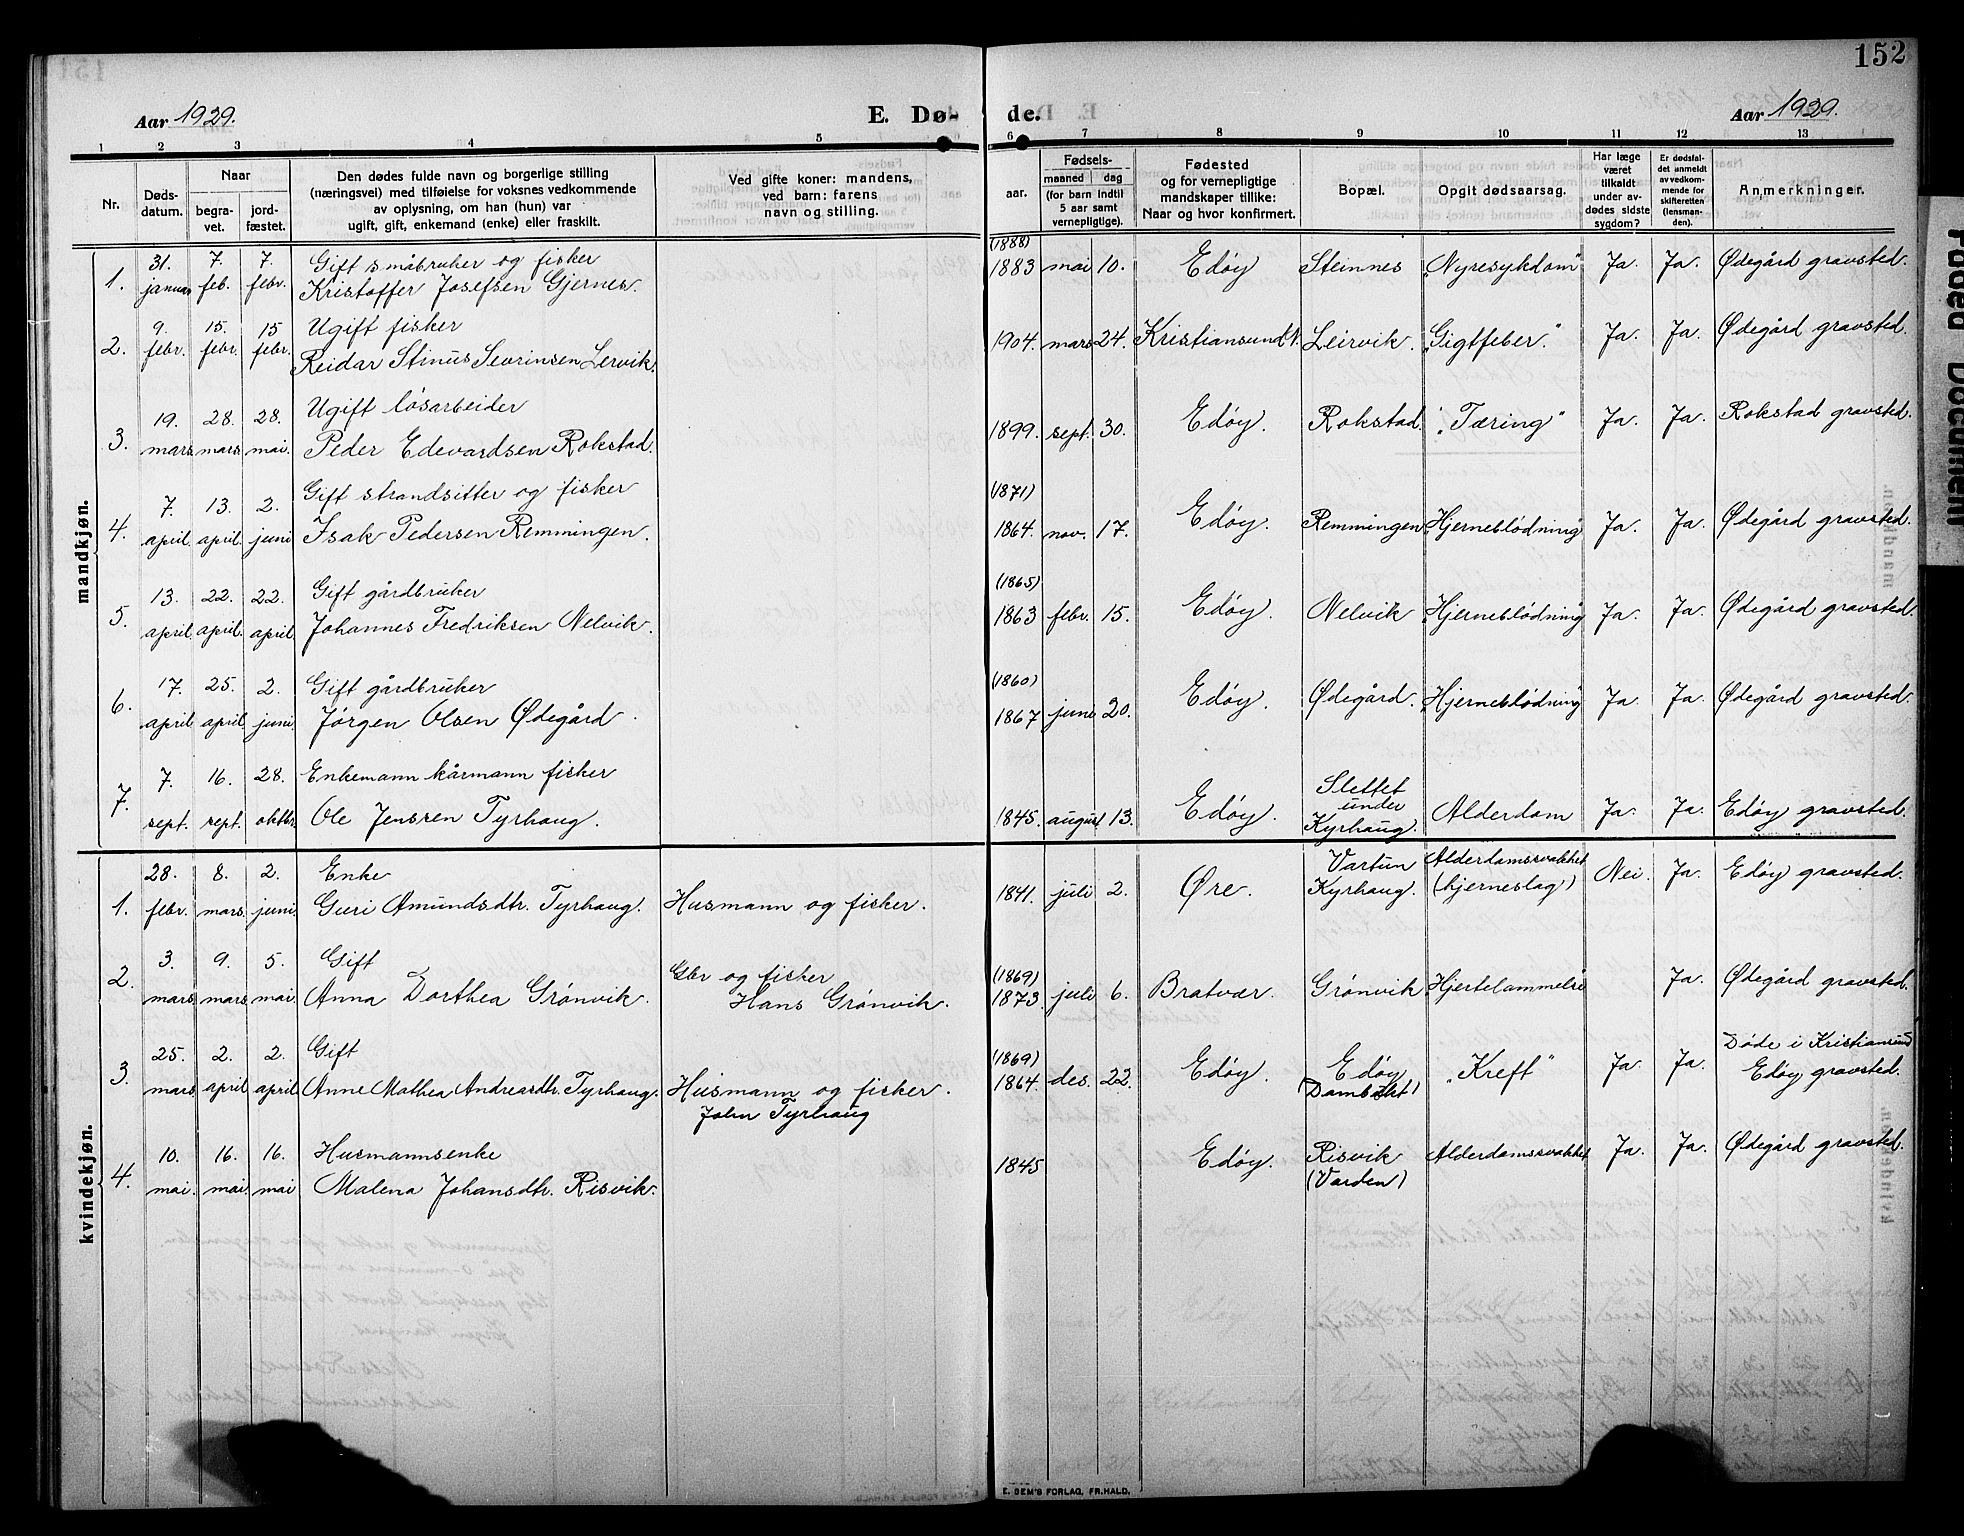 152
Aar 1929.
E. Dø-
de.
Aar 1929.
1 2 3 4 5 6 7 8 9 10 11 12 13
Nr.
Døds-
datum.
Naar
begra-
vet.
jord-
fæstet.
Den dødes fulde navn og borgerlige stilling
(næringsvei) med tilføielse for voksnes vedkommende
av oplysning, om han (hun) var
ugift, gift, enkemand (enke) eller fraskilt.
Ved gifte koner: mandens,
ved barn: farens
navn og stilling.
Fødsels-
aar.
maaned dag
(for barn indtil
5 aar samt
vernepligtige).
Fødested
og for vernepligtige
mandskaper tillike:
Naar og hvor konfirmert.
Bopæl.
Opgit dødsaarsag.
Har læge
været
tilkaldt
under av-
dødes sidste
sygdom?
Er dødsfal-
det anmeldt
av vedkom-
mende for
skifteretten
(lensman-
den).
Anmerkninger.
mandkjøn.
31. 7. 7. Gift småbruker og fisker (1888)
1. januar feb. febr. Kristoffer Josefsen Gjernes. 1883 mai 10. Edøy Steinnes "Nyresykdom" Ja. Ja. Ødegård gravsted.
9. 15. 15 Ugift fisker
2. febr. febr. febr. Reidar Stinus Sevrinsen Lervik. 1904. mars 24. Kristiansund N. Leirvik. "Gigtfeber." Ja. Ja. Ødegård gravsted.
19. 28. 28. Ugift løsarbeider
3. mars mars mai. Peder Edevardsen Rokstad. 1899. sept. 30. Edøy. Rokstad. "Tæring" Ja. Ja. Rokstad gravsted.
7. 13. 2. Gift strandsitter og fisker (1871)
4. april. april. juni Isak Pedersen Remmingen. 1864. nov. 17. Edøy. Remmingen "Hjerneblødning" Ja. Ja. Ødegård gravsted.
13. 22. 22. Gift gårdbruker (1865)
5. april april. april Johannes Fredriksen Nelvik. 1863 febr. 15. Edøy. Nelvik "Hjerneblødning" Ja. Ja. Ødegård gravsted.
17. 25. 2. Gift gårdbruker (1860)
6. april april. juni Jørgen Olsen Ødegård. 1867 juni 20. Edøy. Ødegård. "Hjerneblødning" Ja. Ja. Ødegård gravsted.
7. 16. 28. Enkemann kårmann fisker Slettet
under
7. sept. sept. oktbr. Ole Jensen Tyrhaug. 1845. august 13. Edøy. Kyrhaug. Alderdom Ja. Ja. Edøy gravsted.
kvindekjøn.
28. 8. 2. Enke Vartun Alderdomssvakhet
1. febr. mars. juni. Guri Amundsdtr. Tyrhaug. Husmann og fisker. 1841. juli 2. Øre. Kyrhaug. (hjerneslag) Nei. Ja. Edøy gravsted.
3. 9. 5. Gift Gbr og fisker (1869)
2. mars mars mai Anna Dorthea Grønvik. Hans Grønvik. 1873. juli 6. Bratvær. Grønvik Hjertelammelse Ja. Ødegård gravsted.
25. 2. 2. Gift (1869) Døde i Kristiansund
3. mars april. april Anne Mathea Andreasdtr. Tyrhaug. Husmann og fisker. 1864. des. 22. Edøy. Edøy "Kreft" Ja. Ja. Edøy gravsted.
John Tyrhaug
10. 16. 16. Husmannsenke
4. mai. mai. mai Malena Johansdtr. Risvik. 1845 Edøy. Risvik Alderdomssvakhet Ja. Ja. Ødegård gravsted.
(Varden)
E. SEM'S FORLAG, FR.HALD.
Faded Document